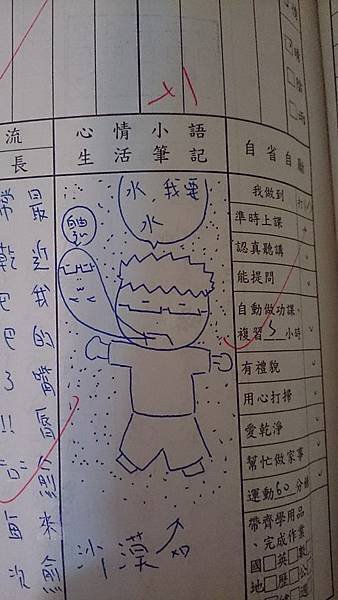 流
長
心情小語
生活筆記
自省自勵
最近我的嘴唇愈來愈
常乾巴巴了!!
每次
我要水
水
沙漠
我做到
準時上課
認真聽講
能提問
自動做功課、
複習3小時
有禮貌
用心打掃
愛乾淨
幫忙做家事
運動60分鐘
帶齊學用品
完成作業
國□英□數
地□歷□公